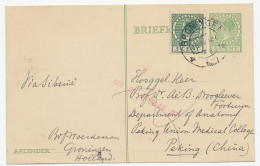 BRIEFK
Via Siberië
Hooggel. Heer
Prof. Dr. A. B. Droogleever
Fortuyn
Department of Anatomy
Peking Union Medical College
Peking (China)
Prof. Woerdeman
Groningen
Holland.
AFZENDER: